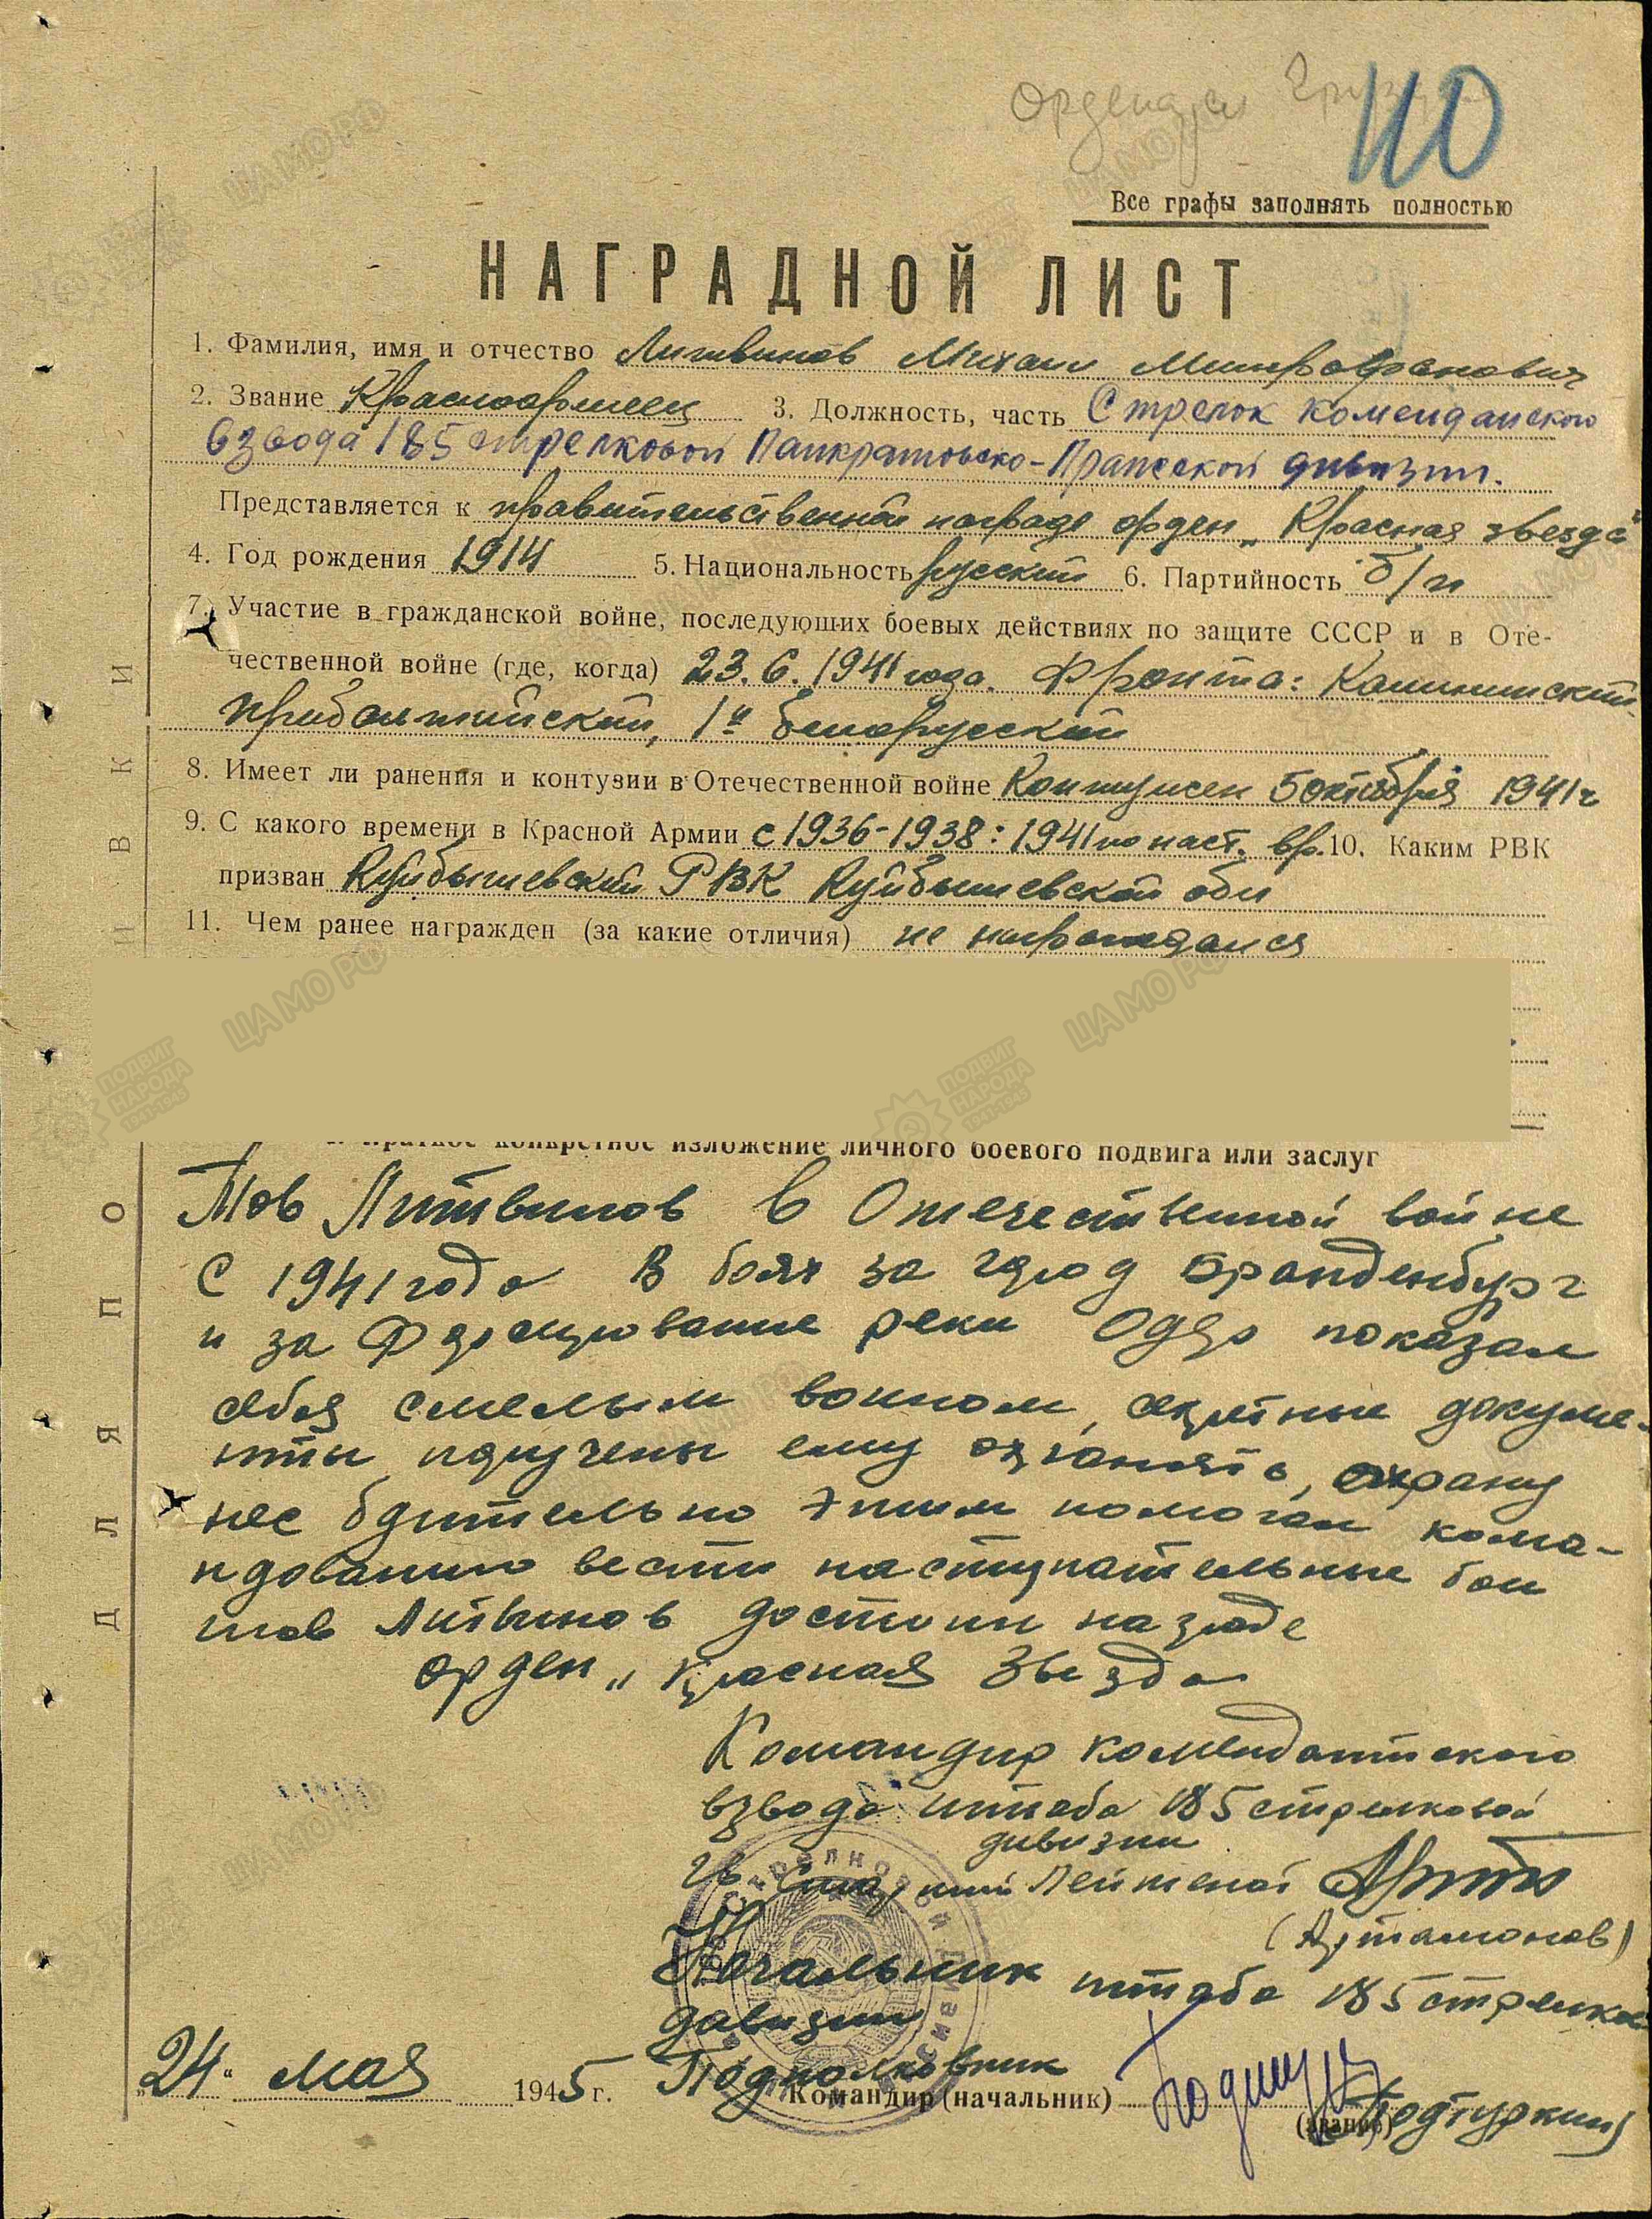 Ордена
110
Все графы заполнять полностью
НАГРАДНОЙ ЛИСТ
1. Фамилия, имя и отчество Литвинов Михаил Митрофанович
2. Звание Красноармеец 3. Должность, часть Стрелок комендантского
взвода 185 стрелковой Панкратовско-Пражской дивизии.
Представляется к правительственной награде орден „Красная звезда"
4. Год рождения 1914 5. Национальность русский 6. Партийность б/п
7. Участие в гражданской войне, последующих боевых действиях по защите СССР и в Оте-
чественной войне (где, когда) 23.6.1941 года. Фронта: Калининский
Прибалтийский, 1й белорусский
8. Имеет ли ранения и контузии в Отечественной войне Контужен 5 октября 1941 г
9. С какого времени в Красной Армии с 1936-1938: 1941 по наст. вр. 10. Каким РВК
призван Куйбышевский РВК Куйбышевской обл
11. Чем ранее награжден (за какие отличия) не награждался
ЦАМО РФ
ЦАМО РФ
ПОДВИГ НАРОДА 1941-1945
ПОДВИГ НАРОДА 1941-1945
I. Краткое конкретное изложение личного боевого подвига или заслуг
Тов Литвинов в Отечественной войне
с 1941 года В боях за город Бранденбург
и за Форсирование реки Одер показал
себя смелым воином, секретные докуме-
нты поручены ему охранять, охрану
нес бдительно этим помогал кома-
ндованию вести наступательные бои
тов Литвинов достоин награде
орден „Красная Звезда
Командир комендантского
взвода штаба 185 стрелковой
дивизии
гв. Старший Лейтенант
(Артамонов)
Начальник штаба 185 стрелков
дивизии
„24" мая 1945 г. Подполковник
Командир (начальник)
(звание) Подтуркин)
ДЛЯ ПО ИВКИ